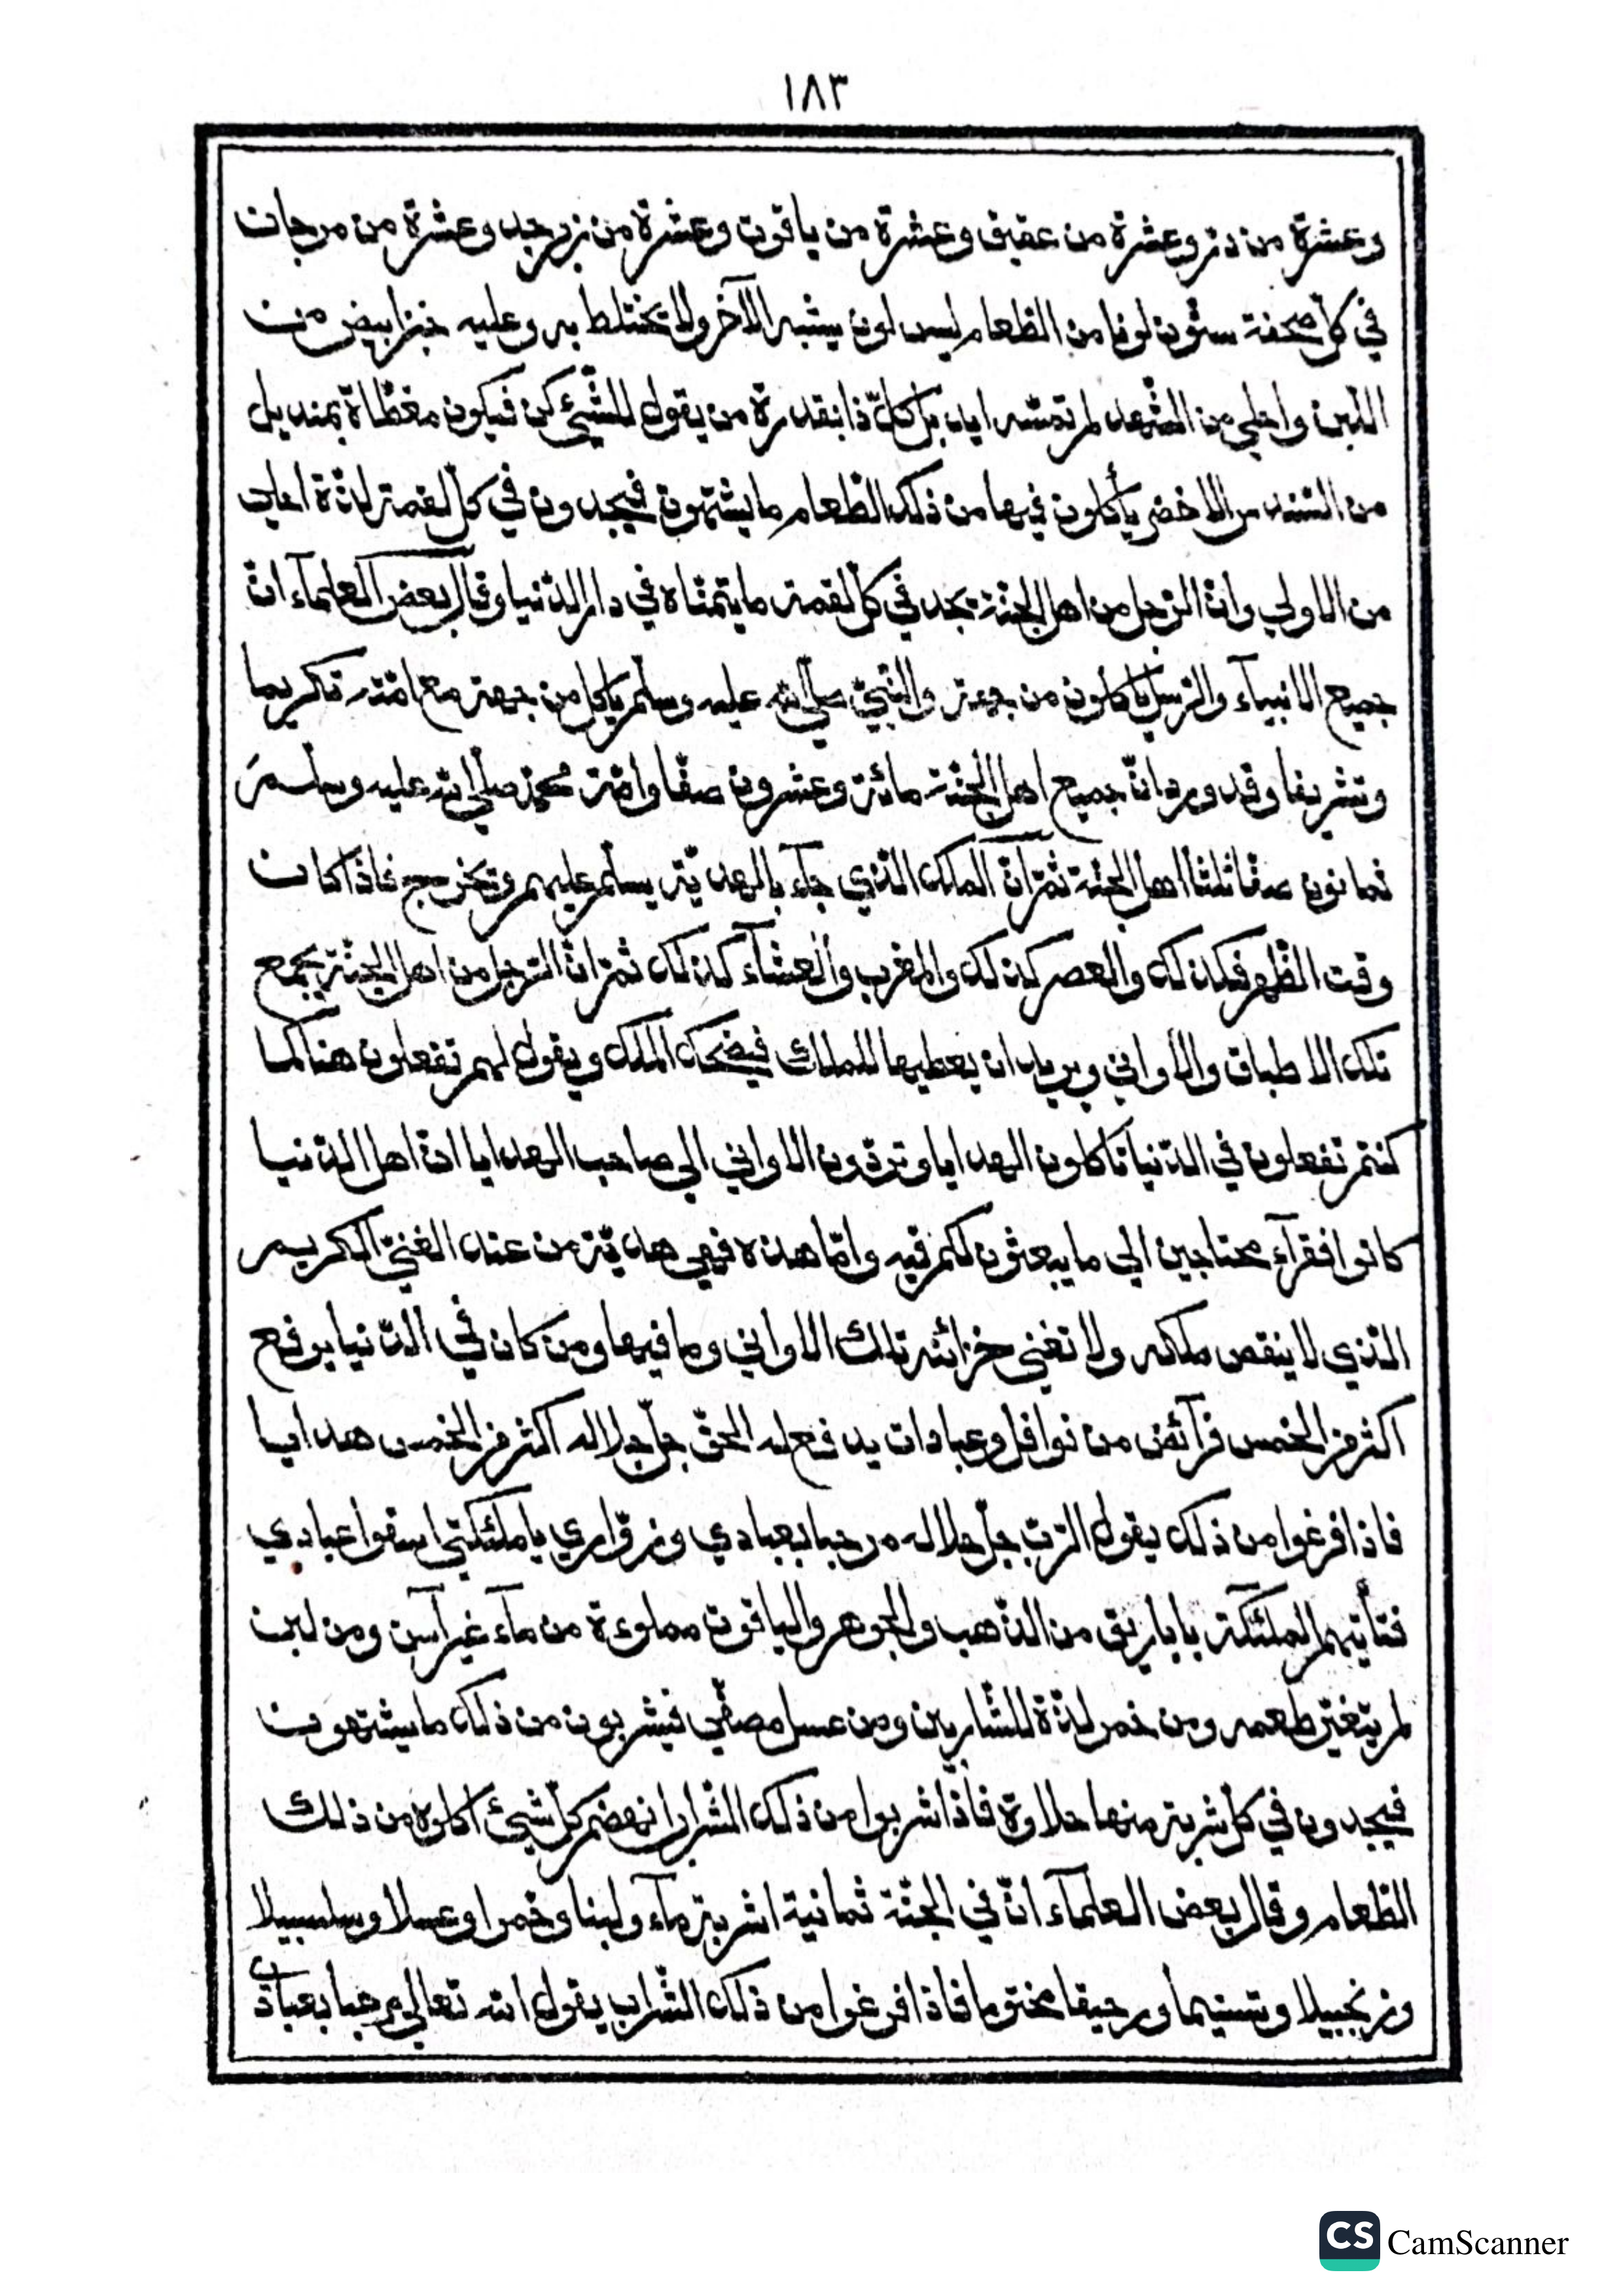 ١٨٣
وعشرة من درّ وعشرة من عقيق وعشرة من ياقوت وعشرة من زبرجد وعشرة من مرجان
في كلّ صحفة ستّون لونا من الطّعام ليس لون يشبه الآخر ولا يختلط به وعليه خبز ابيض من
اللّبن واحلي من الشّهد لم تمسّه ايد بل كلّ ذا بقدرة من يقول للشّيئ كن فيكون مغطّاة بمنديل
من السّندس الاخضر يأكلون فيها من ذلك الطّعام ما يشتهون فيجدون في كلّ لقمة لذّة اعلي
من الاولي وانّ الرّجل من اهل الجنّة يجد في كلّ لقمة ما يتمنّاه في دار الدّنيا وقال بعض العلمآء انّ
جميع الانبيآء والرّسل يأكلون من جهة والنّبيّ صلّي الله عليه وسلّم يأكل من جهة مع امّته تكريما
وتشريفا وقد ورد انّ جميع اهل الجنّة مائة وعشرون صفّا وامّة محمّد صلّي الله عليه وسلّم
ثمانون صفّا ثلثا اهل الجنّة ثمّ انّ الملك الّذي جآء بالهديّة يسلّم عليهم ويخرج فاذا كان
وقت الظّهر فكذلك والعصر كذلك والمغرب والعشآء كذلك ثمّ انّ الرّجل من اهل الجنّة يجمع
تلك الاطباق والاواني ويريد ان يعطيها للملك فيضحك الملك ويقول لهم تفعلون هنا كما
كنتم تفعلون في الدّنيا تأكلون الهدايا وتردّون الاواني الي صاحب الهدايا انّ اهل الدّنيا
كانوا فقرآء محتاجين الي ما يبعثون لكم فيه وامّا هذه فهي هديّة من عند الغنيّ الكريم
الّذي لا ينقص ملكه ولا تغني خزائنه تلك الاواني وما فيها ومن كان في الدّنيا يرفع
اكثر من الخمس فرآئض من نوافل وعبادات يدفع له الحقّ جلّ جلاله اكثر من الخمس هدايا
فاذا فرغوا من ذلك يقول الرّبّ جلّ جلاله مرحبا بعبادي وزوّاري يا ملئكتي اسقوا عبادي
فتأتيهم الملئكة باباريق من الذّهب والجوهر والياقوت مملوءة من مآء غير آسن ومن لبن
لم يتغيّر طعمه ومن خمر لذّة للشّاربين ومن عسل مصفّي فيشربون من ذلك ما يشتهون
فيجدون في كلّ شربة منها حلاوة فاذا شربوا من ذلك الشّراب انهضم كلّ شيئ اكلوه من ذلك
الطّعام وقال بعض العلمآء انّ في الجنّة ثمانية اشربة مآء ولبنا وخمرا وعسلا وسلسبيلا
وزنجبيلا وتسنيما ورحيقا مختوما فاذا فرغوا من ذلك الشّراب يقول الله تعالي مرحبا بعبادي
CS CamScanner